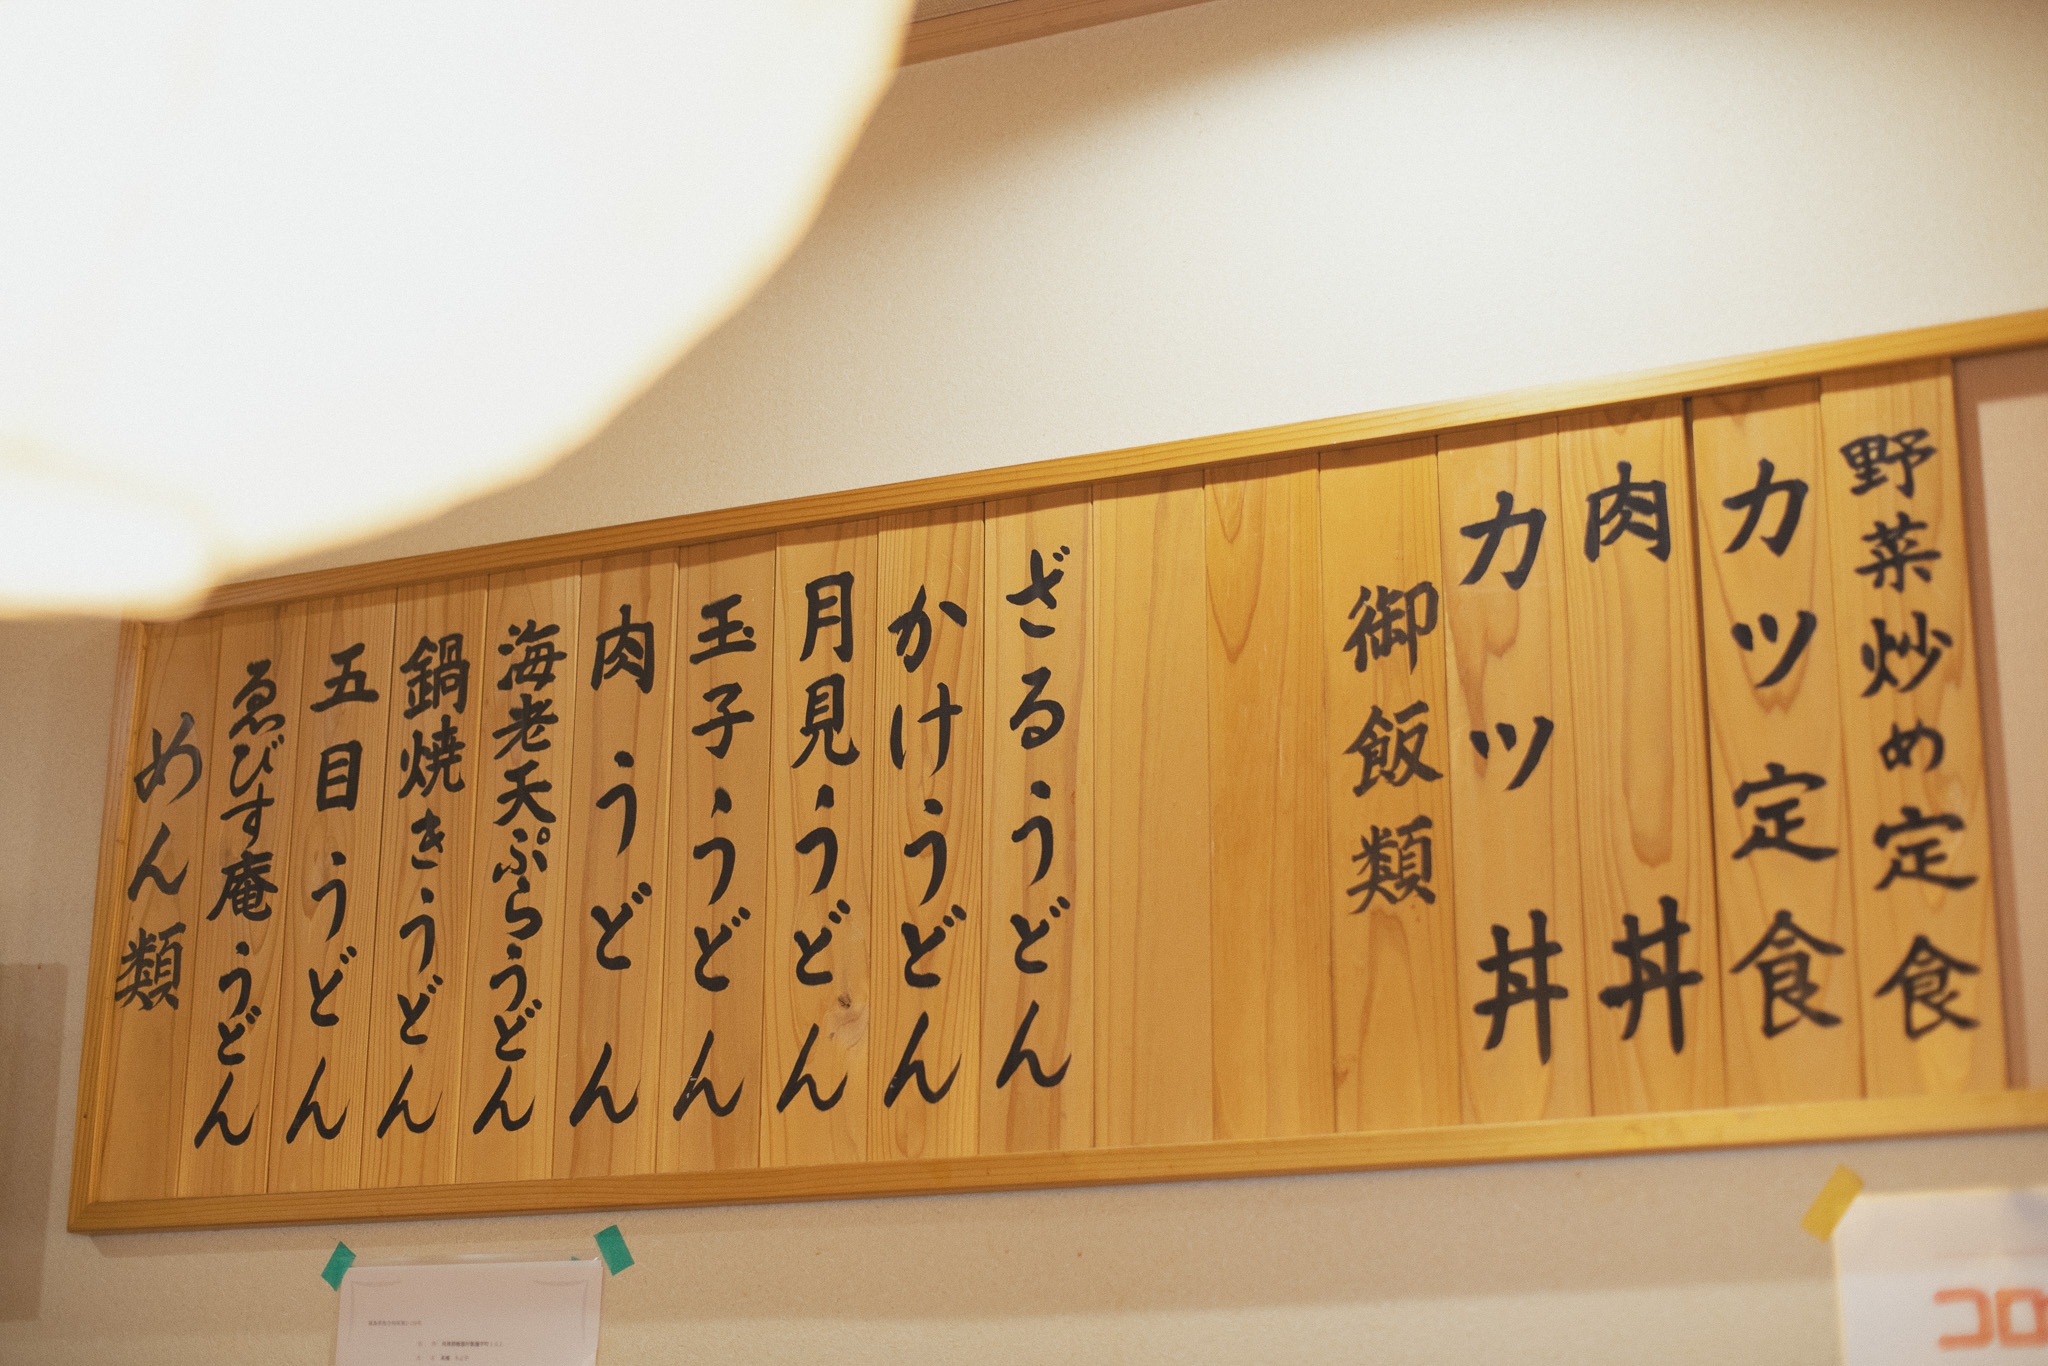 めん類
ゑびす庵うどん
五目うどん
鍋焼きうどん
海老天ぷらうどん
肉うどん
玉子うどん
月見うどん
かけうどん
ざるうどん
御飯類
カツ丼
肉丼
カツ定食
野菜炒め定食
コロ